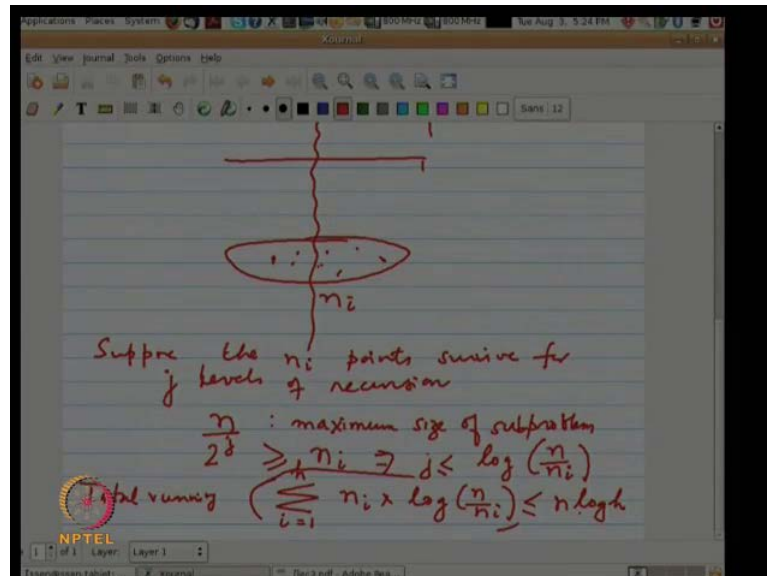 Applications Places System 800 MHz 800 MHz Tue Aug 3, 5:24 PM
Xournal
Edit View Journal Tools Options Help
Sans 12
n_i
Suppose the n_i points survive for
j levels of recursion
n/2^j : maximum size of subproblem
≥ n_i ⇒ j ≤ log (n/n_i)
Total running (∑_{i=1}^{h} n_i × log (n/n_i) ≤ n log h
NPTEL
1 of 1 Layer: Layer 1
Xournal